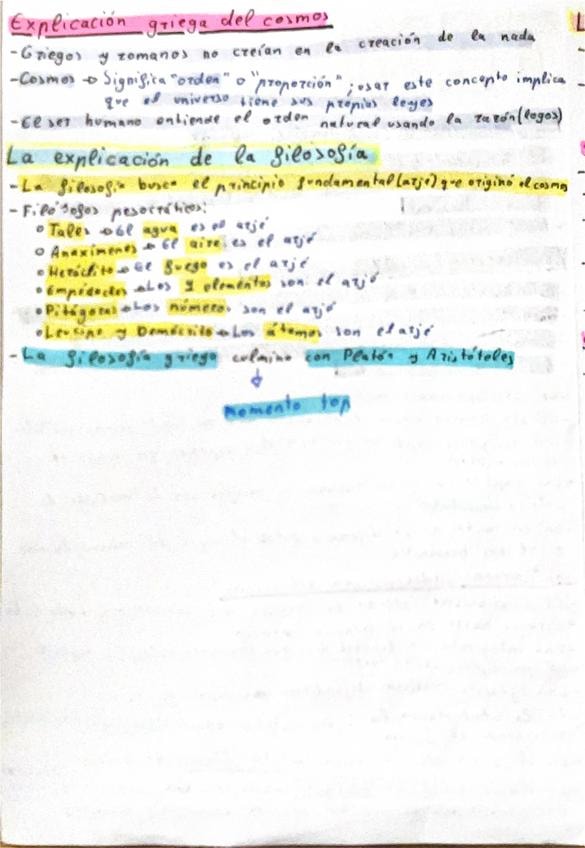 Explicación griega del cosmos
- Griegos y romanos no creían en la creación de la nada
- Cosmos → Significa "orden" o "proporción"; usar este concepto implica
que el universo tiene sus propios leyes
- El ser humano entiende el orden natural usando la razón (logos)
La explicación de la filosofía
- La filosofía busca el principio fundamental (arjé) que originó el cosmos
- Filósofos presocráticos:
o Tales → El agua es el arjé
o Anaxímenes → El aire es el arjé
o Heráclito → El fuego es el arjé
o Empédocles → Los 4 elementos son el arjé
o Pitágoras → Los números son el arjé
o Leucipo y Demócrito → Los átomos son el arjé
- La filosofía griega culmino con Platón y Aristóteles
↓
momento top